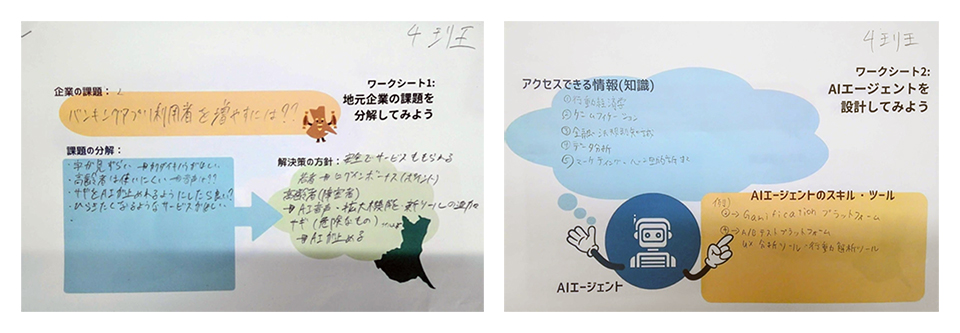 4班
ワークシート1:
地元企業の課題を
分解してみよう
企業の課題：
バンキングアプリ利用者を増やすには??
課題の分解：
・字が見づらい
・高齢者は使いにくい →音声は??
・サギをAIが止めれるようにしたら良い?
・ひらきたくなるようなサービスがほしい
解決策の方針：安全でサービスももらえる
若者→ログインボーナス(ポイント)
高齢者(障害者)
→AI音声・拡大機能 新ツールの追加
サギ(危険なもの)
→AIが止める
4班
ワークシート2:
AIエージェントを
設計してみよう
アクセスできる情報(知識)
①行動経済学
②ゲームフィケーション
③金融・法規制知識
④データ分析
⑤マーケティング・心理
AIエージェントのスキル・ツール
例)
②→Gamificationプラットフォーム
④→A/Bテストプラットフォーム
UX分析ツール・行動解析ツール
AIエージェント